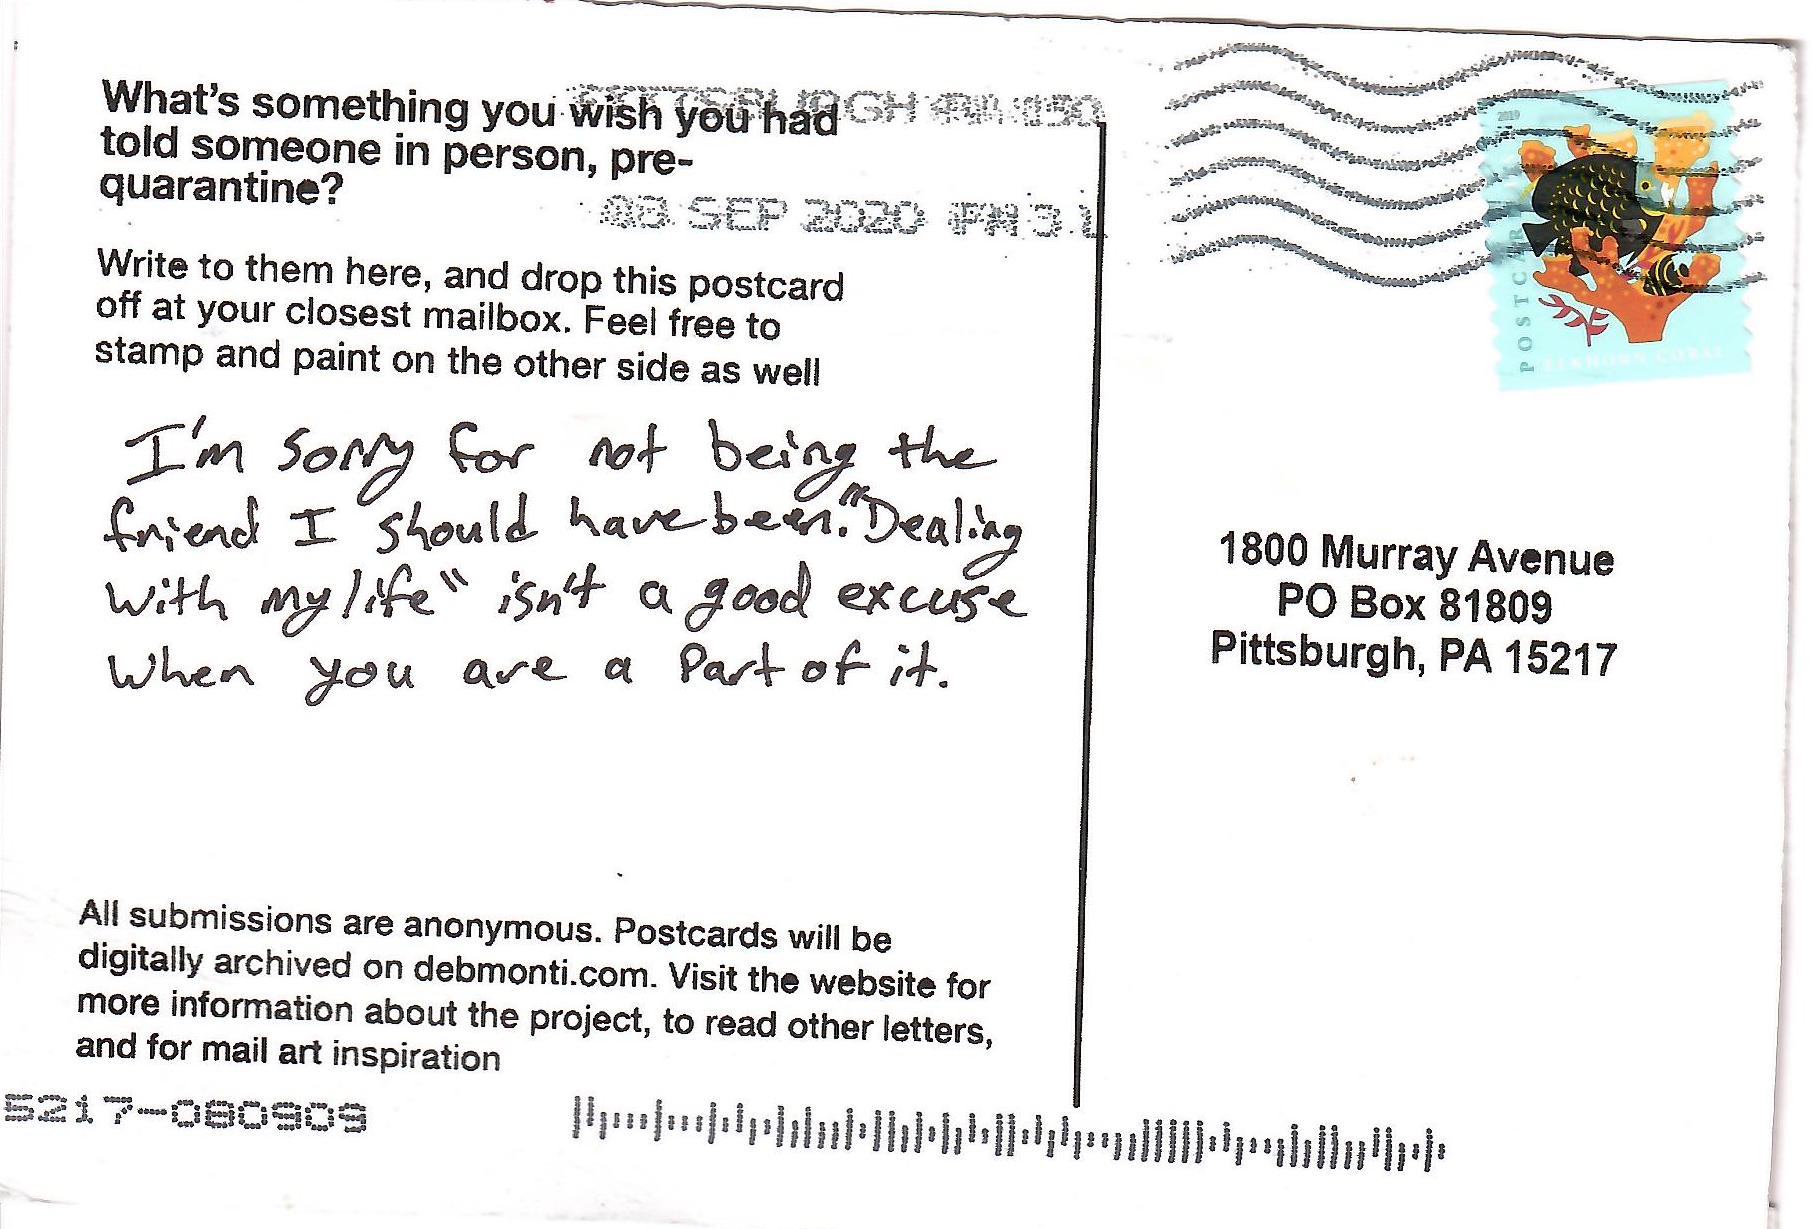 What's something you wish you had
told someone in person, pre-
quarantine?
PITTSBURGH PA 150
08 SEP 2020 PM 3 L
Write to them here, and drop this postcard
off at your closest mailbox. Feel free to
stamp and paint on the other side as well
I'm sorry for not being the
friend I should have been. "Dealing
with my life" isn't a good excuse
when you are a part of it.
All submissions are anonymous. Postcards will be
digitally archived on debmonti.com. Visit the website for
more information about the project, to read other letters,
and for mail art inspiration
5217-080909
2019
POSTCARD
ELKHORN CORAL
1800 Murray Avenue
PO Box 81809
Pittsburgh, PA 15217